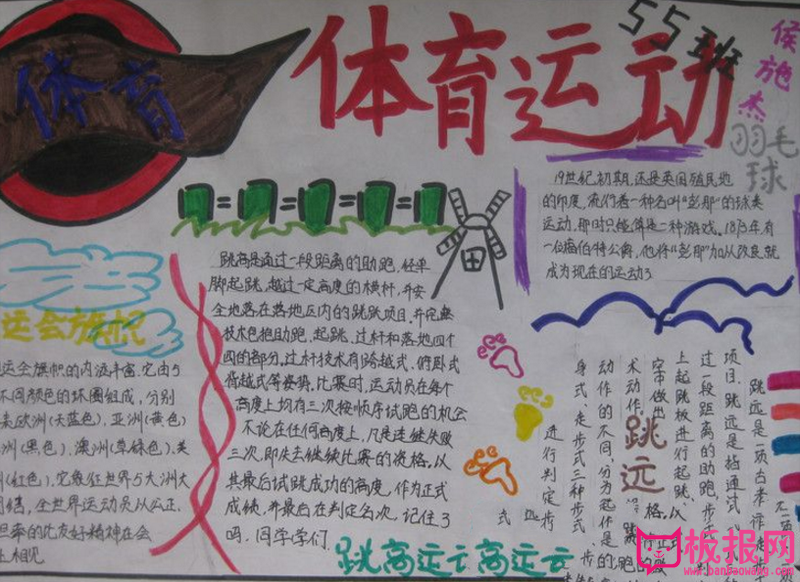 体育
体育运动
55班
侯施杰
羽毛球
19世纪初期,还是英国殖民地
的印度,流行着一种名叫“彭那”的球类
运动,那时只能算是一种游戏。1873年有
一位鲍伯特公爵,他将“彭那”加以改良就
成为现在的运动了
跳高是通过一段距离的助跑,经单
脚起跳,越过一定高度的横杆,并安
全地落在落地区内的跳跃项目,并完整
技术包括助跑、起跳、过杆和落地四个
四的部分,过杆技术有跨越式、俯卧式
背越式等姿势,比赛时,运动员在每个
高度上均有三次按顺序试跳的机会
不论在任何高度上,凡是连续失败
三次,即失去继续比赛的资格,以
其最后试跳成功的高度,作为正式
成绩,并最后在判定名次,记住了
吗,同学学们
运会旗帜
运会旗帜的内涵丰富,它由5
不同颜色的环圈组成,分别
表欧洲(天蓝色),亚洲(黄色)
洲(黑色),澳洲(草绿色),美
(红色),它象征世界5大洲大
团结,全世界运动员以公正、
坦率的比友好精神在会
上相见
跳远
跳远是一项古老
项目,跳远是指通过
过一段距离的助跑,步
上起跳板进行起跳,从
空中做出
术动作,
动作的不同,分为
身式、走步式三种步式
进行判定
板报网
www.banbaowang.com